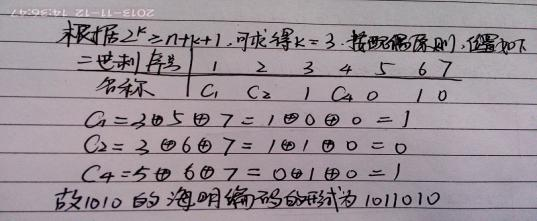 2013-11-12 14:36:47
根据2^k≥n+k+1,可求得k=3.按配偶原则,位置如下
二进制序号 1 2 3 4 5 6 7
名称 C₁ C₂ 1 C₄ 0 1 0
C₁=3⊕5⊕7=1⊕0⊕0=1
C₂=3⊕6⊕7=1⊕1⊕0=0
C₄=5⊕6⊕7=0⊕1⊕0=1
故1010的海明编码的形式为1011010